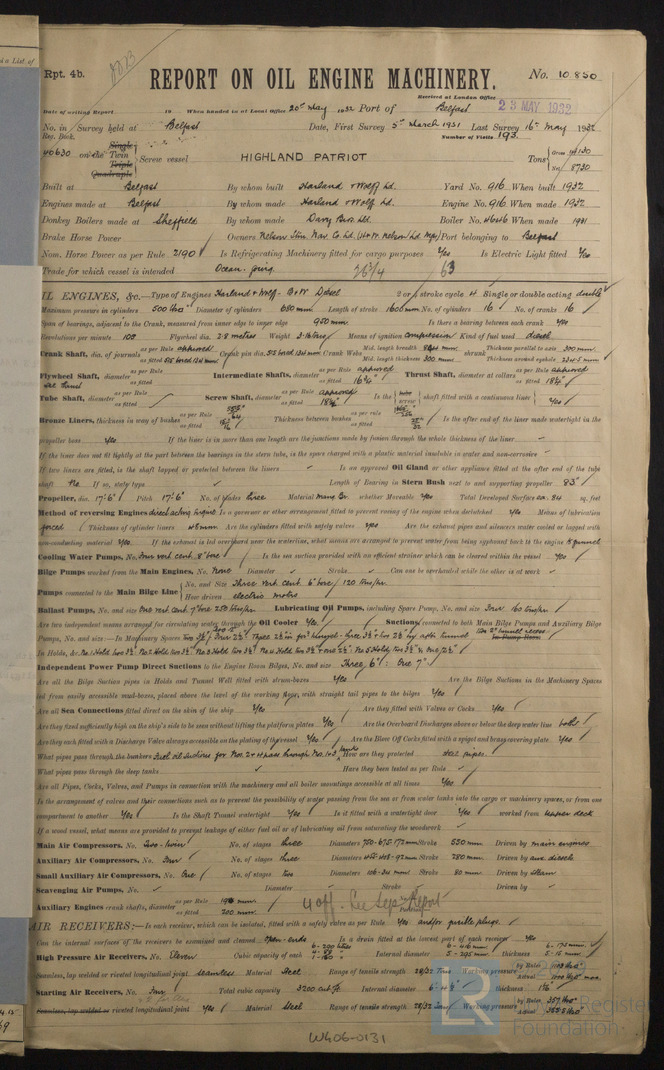 Rpt. 4b.
REPORT ON OIL ENGINE MACHINERY.
No. 10.850
Received at London Office 23 MAY 1932
Date of writing Report 19 When handed in at Local Office 20th May 1932 Port of Belfast
No. in Survey held at Belfast Date, First Survey 5th March 1931 Last Survey 16th May 1932
Reg. Book. Number of Visits 193.
40630 on the Single Twin Triple Quadruple Screw vessel HIGHLAND PATRIOT Tons Gross 14130 Net 8730
Built at Belfast By whom built Harland & Wolff Ld. Yard No. 916 When built 1932
Engines made at Belfast By whom made Harland & Wolff Ld. Engine No. 916 When made 1932
Donkey Boilers made at Sheffield By whom made Davy Bros. Ltd. Boiler No. 4646 When made 1931
Brake Horse Power Owners Nelson Stm. Nav. Co. Ld. (H & W. Nelson Ld. Mgrs) Port belonging to Belfast
Nom. Horse Power as per Rule 2190 Is Refrigerating Machinery fitted for cargo purposes Yes Is Electric Light fitted Yes
Trade for which vessel is intended Ocean going. 26 3/4 63
OIL ENGINES, &c.—Type of Engines Harland & Wolff. B & W. Diesel 2 or 4 stroke cycle 4 Single or double acting double
Maximum pressure in cylinders 500 lbs □" Diameter of cylinders 680 mm Length of stroke 1600 mm No. of cylinders 16 No. of cranks 16
Span of bearings, adjacent to the Crank, measured from inner edge to inner edge 950 mm Is there a bearing between each crank Yes
Revolutions per minute 100 Flywheel dia. 2.8 metres Weight Means of ignition compression Kind of fuel used diesel
Crank Shaft, dia. of journals as per Rule approved as fitted Crank pin dia. Crank Webs Mid. length breadth Mid. length thickness 300 mm shrunk Thickness parallel to axis 300 mm Thickness around eyehole
Flywheel Shaft, diameter as per Rule as fitted Intermediate Shafts, diameter as per Rule approved as fitted 16 1/4" Thrust Shaft, diameter at collars as per Rule approved as fitted 18 1/4"
Tube Shaft, diameter as per Rule as fitted Screw Shaft, diameter as per Rule approved as fitted 18 1/4" Is the tube screw shaft fitted with a continuous liner Yes
Bronze Liners, thickness in way of bushes as per Rule as fitted Thickness between bushes as per rule as fitted Is the after end of the liner made watertight in the
propeller boss Yes If the liner is in more than one length are the junctions made by fusion through the whole thickness of the liner
If the liner does not fit tightly at the part between the bearings in the stern tube, is the space charged with a plastic material insoluble in water and non-corrosive
If two liners are fitted, is the shaft lapped or protected between the liners Is an approved Oil Gland or other appliance fitted at the after end of the tube
shaft No If so, state type Length of Bearing in Stern Bush next to and supporting propeller 83"
Propeller, dia. 17'-6" Pitch 17'-6" No. of blades three Material Mang. Br. whether Moveable Yes Total Developed Surface ea. 84 sq. feet
Method of reversing Engines direct acting Engine Is a governor or other arrangement fitted to prevent racing of the engine when declutched Yes Means of lubrication
forced Thickness of cylinder liners 48 mm Are the cylinders fitted with safety valves Yes Are the exhaust pipes and silencers water cooled or lagged with
non-conducting material Yes If the exhaust is led overboard near the waterline, what means are arranged to prevent water from being syphoned back to the engine to funnel
Cooling Water Pumps, No. Four vert. cent. 8" bore Is the sea suction provided with an efficient strainer which can be cleared within the vessel Yes
Bilge Pumps worked from the Main Engines, No. None Diameter Stroke Can one be overhauled while the other is at work
Pumps connected to the Main Bilge Line No. and Size Three vert. cent. 6" bore 120 tons/hr.
How driven electric motors
Ballast Pumps, No. and size One vert. cent. 7" bore 250 tons/hr. Lubricating Oil Pumps, including Spare Pump, No. and size Four 160 tons/hr
Are two independent means arranged for circulating water through the Oil Cooler Yes Suctions, connected to both Main Bilge Pumps and Auxiliary Bilge
Pumps, No. and size:—In Machinery Spaces
In Holds, &c.
Independent Power Pump Direct Suctions to the Engine Room Bilges, No. and size Three 6": One 7"
Are all the Bilge Suction pipes in Holds and Tunnel Well fitted with strum-boxes Yes Are the Bilge Suctions in the Machinery Spaces
led from easily accessible mud-boxes, placed above the level of the working floor, with straight tail pipes to the bilges Yes
Are all Sea Connections fitted direct on the skin of the ship Yes Are they fitted with Valves or Cocks Yes
Are they fixed sufficiently high on the ship's side to be seen without lifting the platform plates Yes Are the Overboard Discharges above or below the deep water line both
Are they each fitted with a Discharge Valve always accessible on the plating of the vessel Yes Are the Blow Off Cocks fitted with a spigot and brass covering plate Yes
What pipes pass through the bunkers Fuel oil suctions for Nos. 2 & 4 pass through Nos. 1 & 3 tanks How are they protected steel pipes.
What pipes pass through the deep tanks Have they been tested as per Rule
Are all Pipes, Cocks, Valves, and Pumps in connection with the machinery and all boiler mountings accessible at all times Yes.
Is the arrangement of valves and their connections such as to prevent the possibility of water passing from the sea or from water tanks into the cargo or machinery spaces, or from one
compartment to another Yes Is the Shaft Tunnel watertight Yes Is it fitted with a watertight door Yes worked from upper deck
If a wood vessel, what means are provided to prevent leakage of either fuel oil or of lubricating oil from saturating the woodwork
Main Air Compressors, No. Two-twin No. of stages three Diameters 750-675-172 mm Stroke 550 mm Driven by main engines
Auxiliary Air Compressors, No. Four No. of stages three Diameters 455-408-92 mm Stroke 280 mm Driven by aux. diesels
Small Auxiliary Air Compressors, No. One No. of stages two Diameters 106-34 mm Stroke 80 mm Driven by steam
Scavenging Air Pumps, No. Diameter Stroke Driven by
Auxiliary Engines crank shafts, diameter as per Rule 196 mm as fitted 200 mm 4 off. See Sep. Report
AIR RECEIVERS:—Is each receiver, which can be isolated, fitted with a safety valve as per Rule Yes and/or fusible plugs.
Can the internal surfaces of the receivers be examined and cleaned Open-ends Is a drain fitted at the lowest part of each receiver Yes
High Pressure Air Receivers, No. Eleven Cubic capacity of each 6-200 litres Internal diameter 6-416 mm 5-295 mm thickness 5-15 mm
Seamless, lap welded or riveted longitudinal joint seamless Material Steel Range of tensile strength 28/32 Tons Working pressure by Rules Actual
Starting Air Receivers, No. Four Total cubic capacity 3200 cub. ft. Internal diameter thickness
Seamless, lap welded or riveted longitudinal joint Yes Material Steel Range of tensile strength 28/32 Tons Working pressure by Rules Actual
W406-0131
Lloyd's Register
Foundation